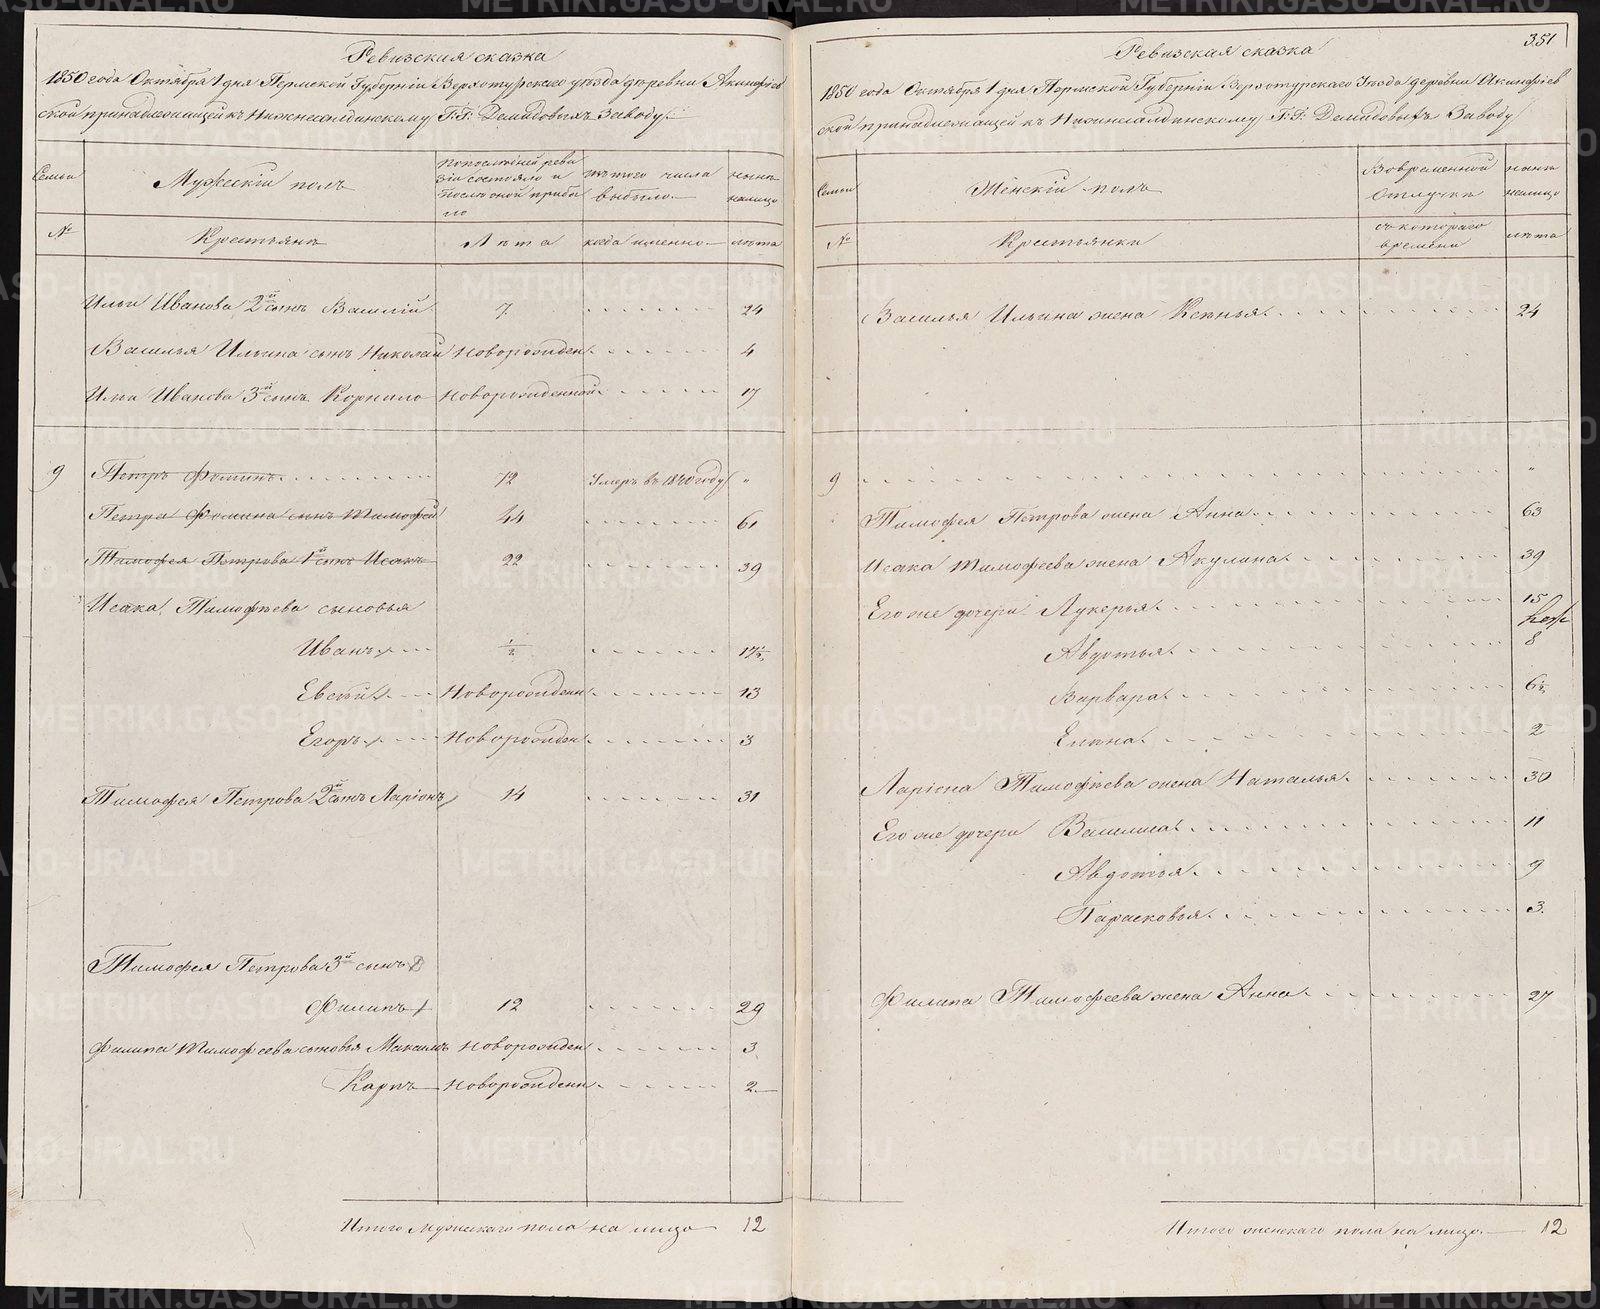 Ревизская сказка
1850 года Октября 1 дня Пермской Губерніи Верхотурскаго уѣзда деревни Акинфіев
ской принадлежащей къ Нижнесалдинскому Г:Г: Демидовыхъ Заводу
Семьи
Мужескій полъ
По послѣдней реви
зіи состояло и
послѣ оной прибы
ло
изъ того числа
выбыло
нынѣ
налицо
№
Крестьянъ
Лѣта
когда именно
лѣта
Ильи Иванова 2й сынъ Василій 7 24
Василья Ильина сынъ Николай Новорожден. 4
Ильи Иванова 3й сынъ Корнило Новорожденной 17
9 Петръ Фоминъ 72 Умеръ въ 1840 году "
Петра Фомина сынъ Тимофей 44 61
Тимофея Петрова 1й сынъ Исакъ 22 39
Исака Тимофѣева сыновья
Иванъ ½ 17½
Евсѣй Новорожден 13
Егоръ Новорожден 3
Тимофея Петрова 2й сынъ Ларіонъ 14 31
Тимофея Петрова 3й сынъ
Филипъ 12 29
Филипа Тимофеева сыновья Максимъ Новорожден 3
Карпъ Новорожден 2
Итого мужескаго пола на лицо 12
351
Ревизская сказка
1850 года Октября 1 дня Пермской Губерніи Верхотурскаго Уѣзда деревни Акинфіев
ской принадлежащей къ Нижнесалдинскому Г:Г: Демидовыхъ Заводу
Семьи
Женскій полъ
Во временной
отлучкѣ
нынѣ
налицо
№
Крестьянки
съ котораго
времени
лѣта
Василья Ильина жена Ксѣнья 24
9 "
Тимофея Петрова жена Анна 63
Исака Тимофеева жена Акулина 39
Его же дочери Лукерья 15
Авдотья 8
Варвара 6½
Елена 2
Ларіона Тимофѣева жена Наталья 30
Его же дочери Василиса 11
Авдотья 9
Парасковья 3.
Филипа Тимофеева жена Анна 27
Итого женскаго пола на лицо 12
METRIKI.GASO-URAL.RU